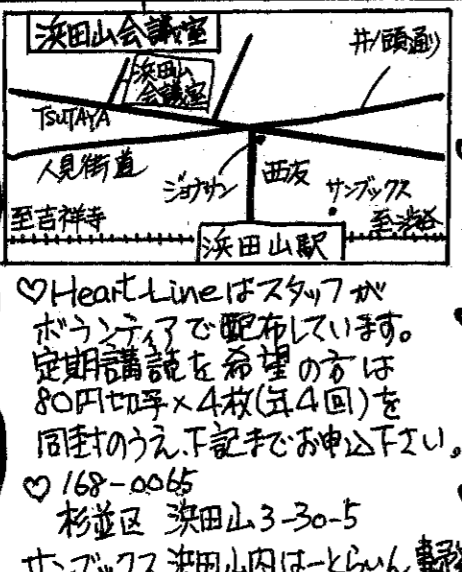 浜田山会議室
井ノ頭通り
浜田山
会議室
TSUTAYA
人見街道
ジョナサン
西友
サンブックス
至吉祥寺
至渋谷
浜田山駅
♡Heart-Lineはスタッフが
ボランティアで配布しています。
定期講読を希望の方は
80円切手×4枚(年4回)を
同封のうえ、下記までお申込下さい。
♡168-0065
杉並区 浜田山3-30-5
サンブックス浜田山内はーとらいん